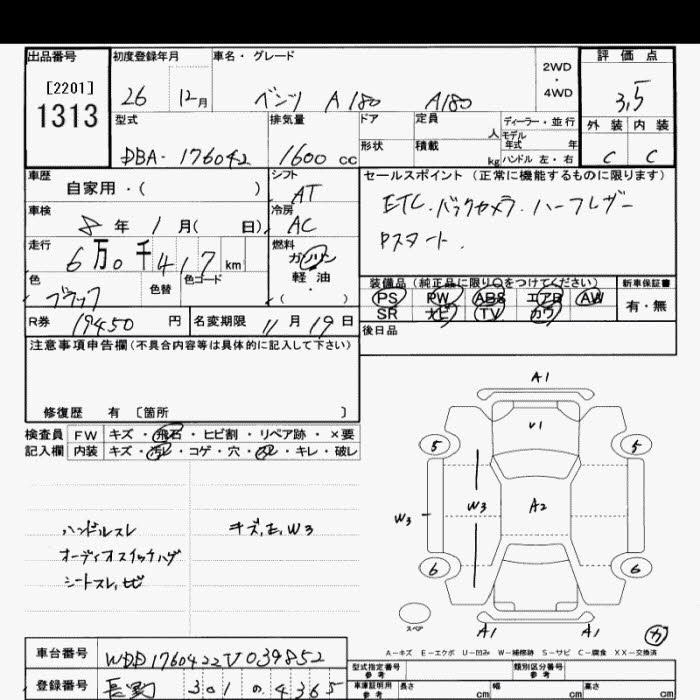 出品番号 初度登録年月 車名・グレード 2WD ・ 4WD 評価点
[2201]
1313
26 12月 ベンツ A180 A180 3,5
型式 排気量 ドア 定員 人 ディーラー・並行 外装 内装
モデル年式 年
DBA-176042 1600 cc 形状 積載 kg ハンドル 左・右 C C
車歴 シフト セールスポイント (正常に機能するものに限ります)
自家用・( ) AT
車検 冷房 ETC.バックカメラ.ハーフレザー
8年 1月( 日) AC Pスタート.
走行 燃料
6万0千417km ガソリン
軽油
・( )
色 色替 色コード 装備品(純正品に限り○をつけてください) 新車保証書
ブラック PS PW ABS エアB AW 有・無
SR ナビ TV カワ
R券 19450円 名変期限 11月19日 後日品
注意事項申告欄(不具合内容等は具体的に記入して下さい)
修復歴 有 [箇所 ]
検査員 FW キズ・飛石・ヒビ割・リペア跡・×要
記入欄 内装 キズ・汚レ・コゲ・穴・スレ・キレ・破レ
ハンドルスレ キズ,E,W3
オーディオスイッチハゲ
シートスレ,
A1
V1
5 5
W3 W3 A2
6 6
スペア A1 A1 カ
A-キズ E-エクボ U-凹み W-補修跡 S-サビ C-腐食 XX-交換済
車台番号 WDD1760422V039852
型式指定番号 参考 類別区分番号 参考
登録番号 301 の 4365
車庫証明用 参考 長さ cm 幅 cm 高さ cm